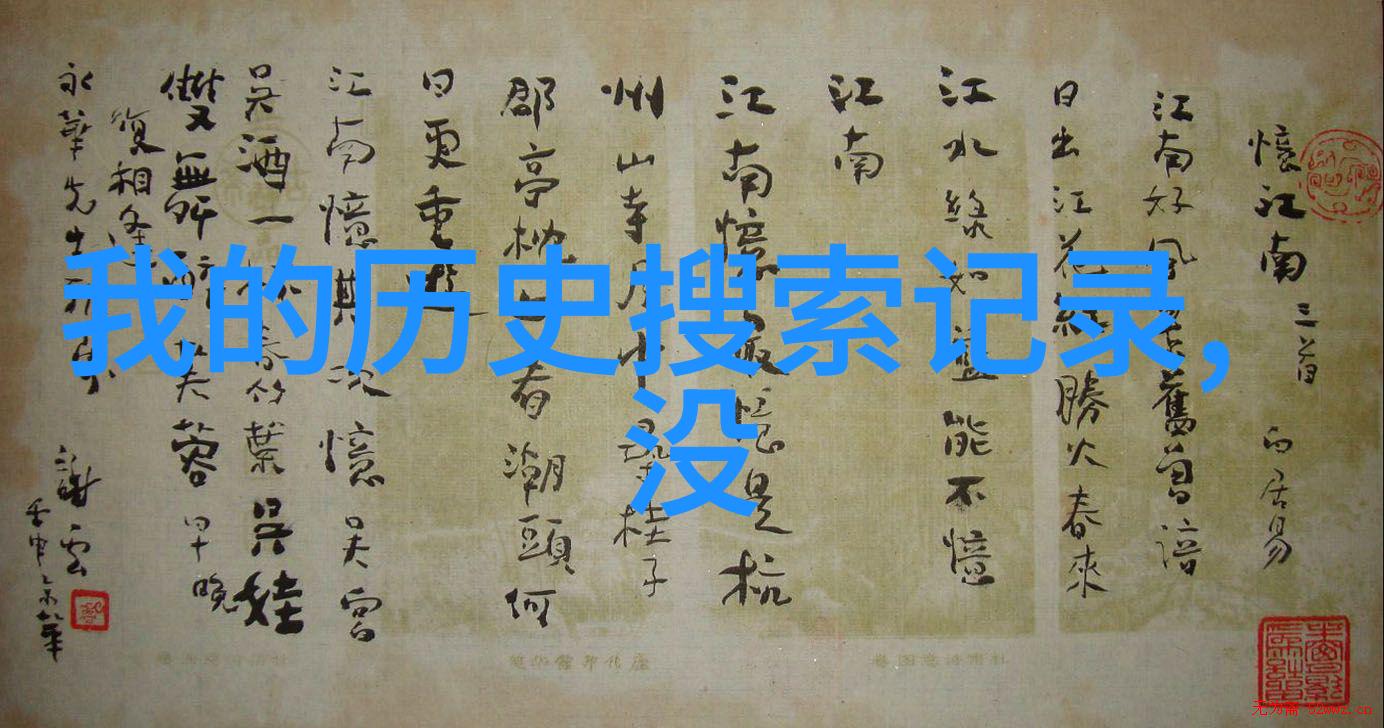 我的历史搜索记录,
没
憶江南 三首 白居易
江南好風景舊曾諳
日出江花紅勝火春來
江水綠如藍能不憶
江南
江南憶最憶是杭
州山寺月中尋桂子
郡亭枕上看潮頭何
日更重遊
江南憶其次憶吳宮
吳酒一杯春竹葉吳娃
雙舞醉芙蓉早晚
復相逢
永華先生
謝雲
无为斋 52wwz.cn